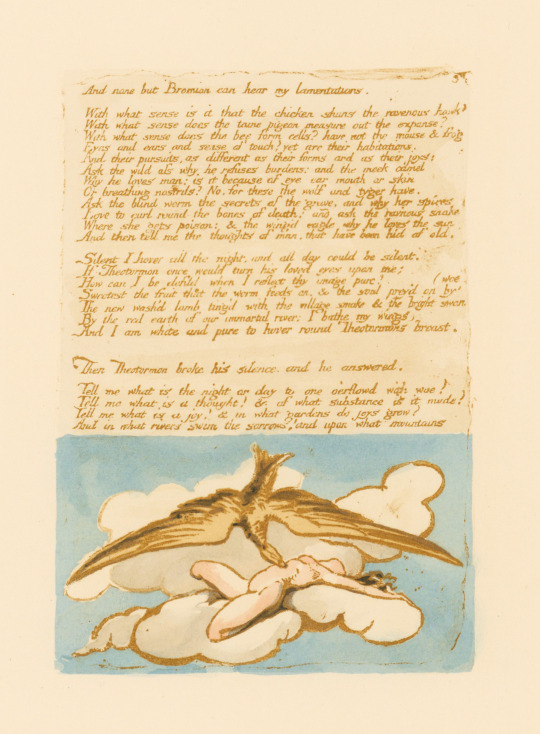 And none but Bromion can hear my lamentations.
With what sense is it that the chicken shuns the ravenous hawk?
With what sense does the tame pigeon measure out the expanse?
With what sense does the bee form cells? have not the mouse & frog
Eyes and ears and sense of touch? yet are their habitations.
And their pursuits, as different as their forms and as their joys:
Ask the wild ass why he refuses burdens: and the meek camel
Why he loves man: is it because of eye ear mouth or skin
Or breathing nostrils? No. for these the wolf and tyger have.
Ask the blind worm the secrets of the grave, and why her spires
Love to curl round the bones of death; and ask the rav'nous snake
Where she gets poison: & the wing'd eagle why he loves the sun
And then tell me the thoughts of man, that have been hid of old.
Silent I hover all the night, and all day could be silent.
If Theotormon once would turn his loved eyes upon me;
How can I be defild when I reflect thy image pure? (woe
Sweetest the fruit that the worm feeds on. & the soul prey'd on by
The new wash'd lamb ting'd with the village smoke & the bright swan
By the red earth of our immortal river: I bathe my wings.
And I am white and pure to hover round Theotormons breast.
Then Theotormon broke his silence. and he answered.
Tell me what is the night or day to one o'erflowd with woe?
Tell me what is a thought? & of what substance is it made?
Tell me what is a joy? & in what gardens do joys grow?
And in what rivers swim the sorrows? and upon what mountains